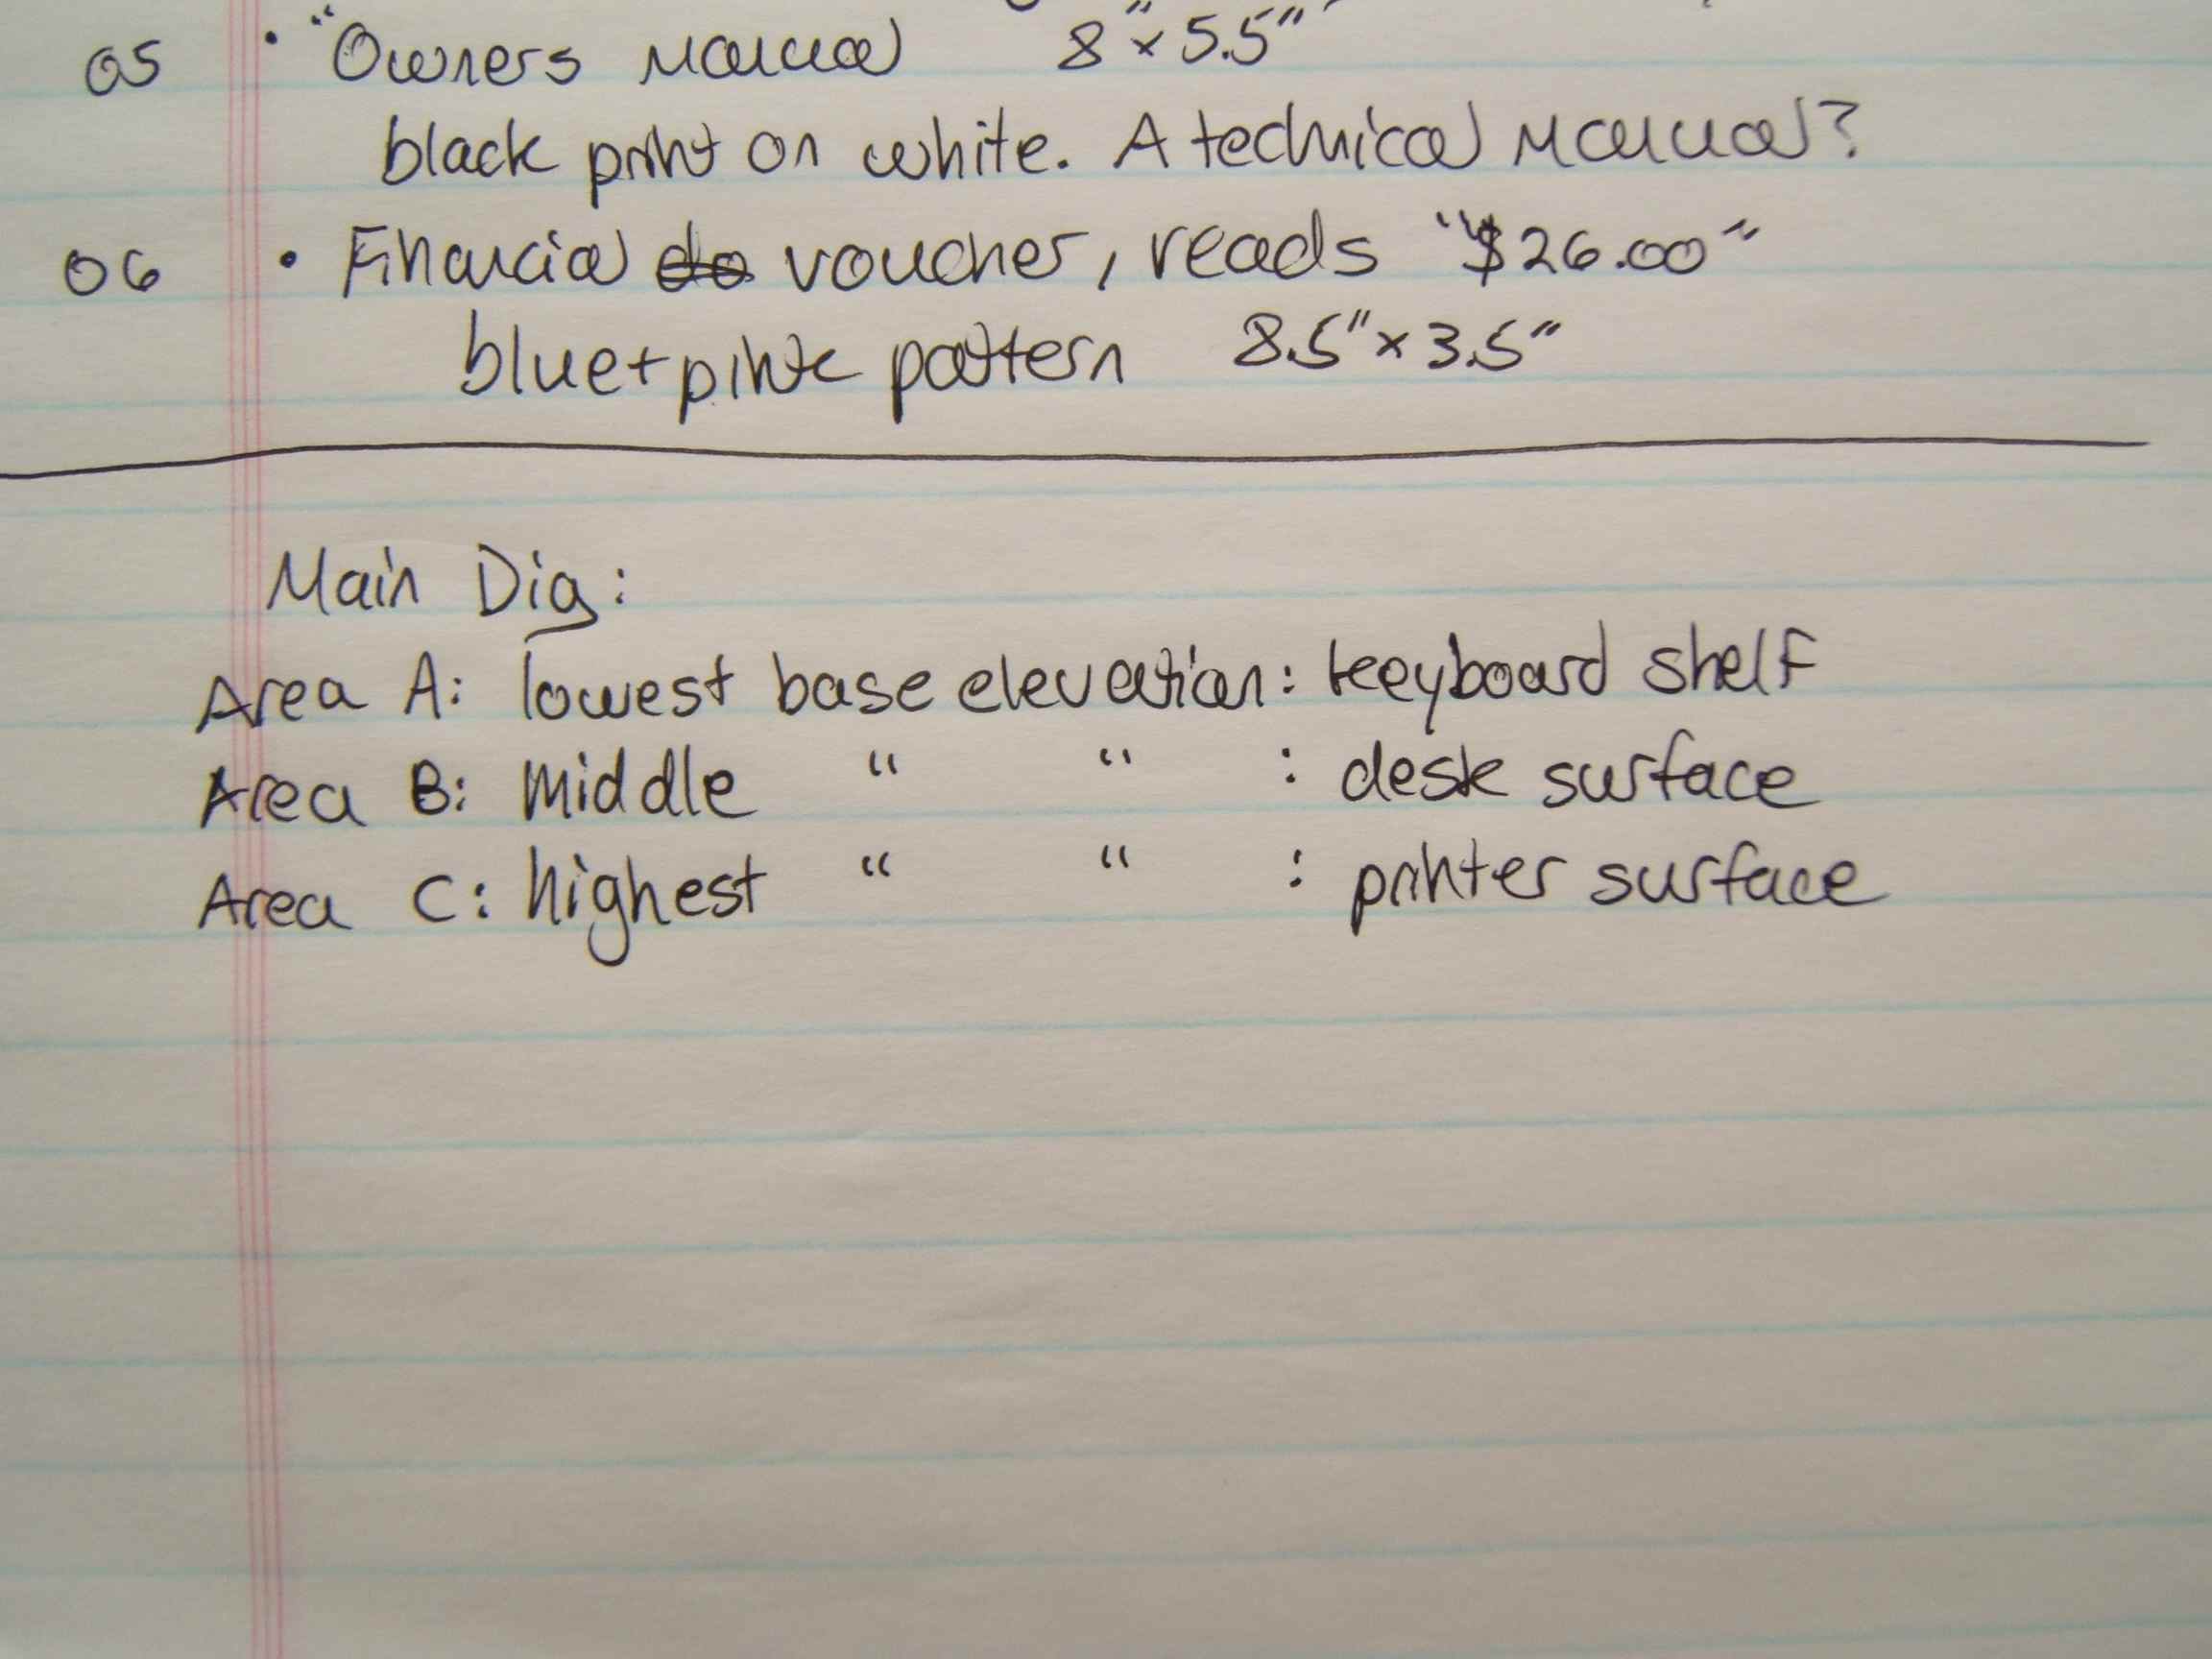 05 • "Owners manual 8" x 5.5"
black print on white. A technical manual?
06 • Financial do voucher, reads "$26.00"
blue + pink pattern 8.5" x 3.5"
Main Dig:
Area A: lowest base elevation: keyboard shelf
Area B: Middle " " : desk surface
Area C: highest " " : printer surface